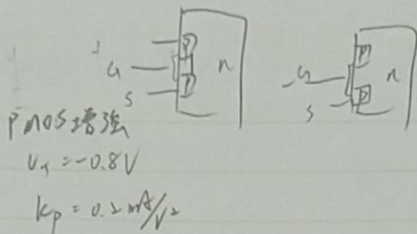 G
S
P
P
n
G
S
P
P
n
PMOS增强
U_T = -0.8V
Kp = 0.2 mA/V²